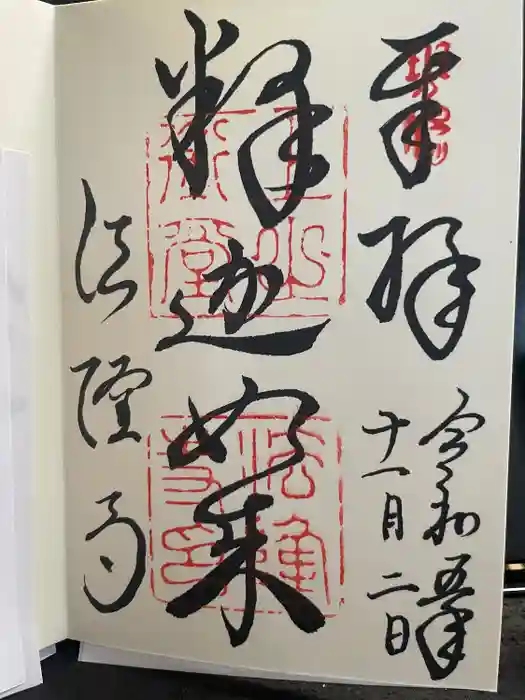 奉拝
令和五年
十一月二日
釈迦如来
法隆寺
法隆寺印